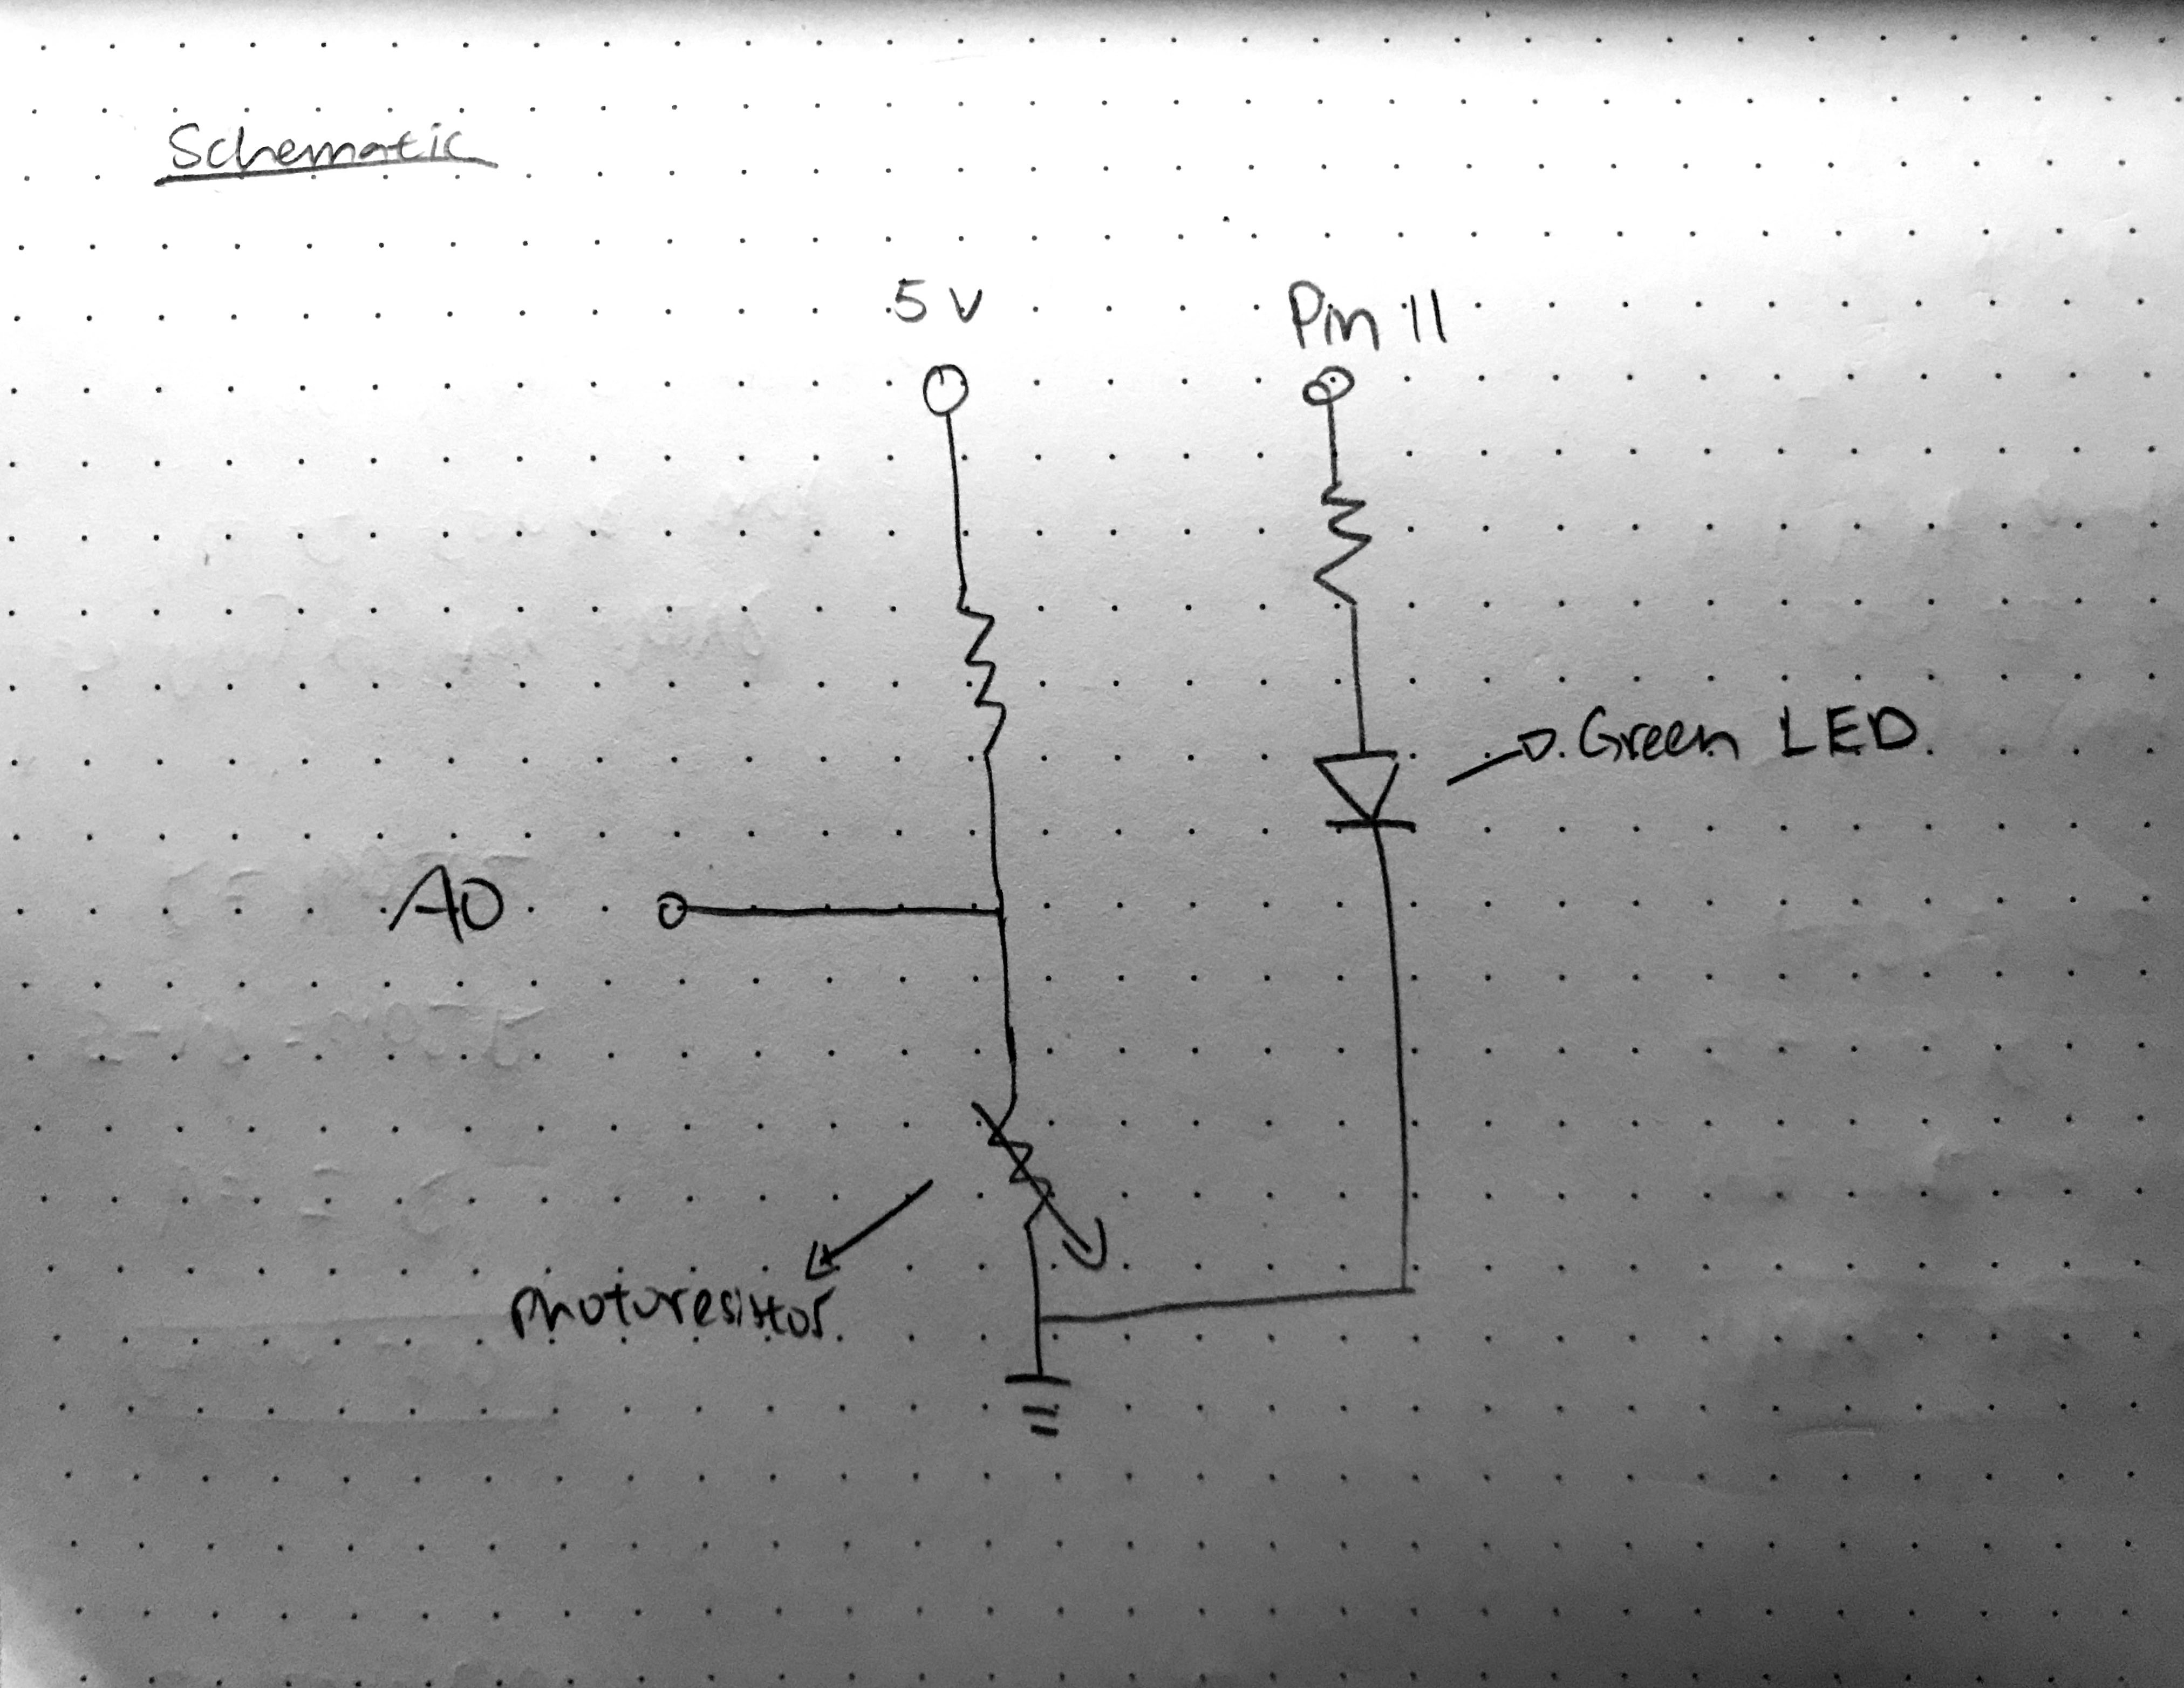 Schematic
5V
Pin 11
Green LED
A0
Photoresistor